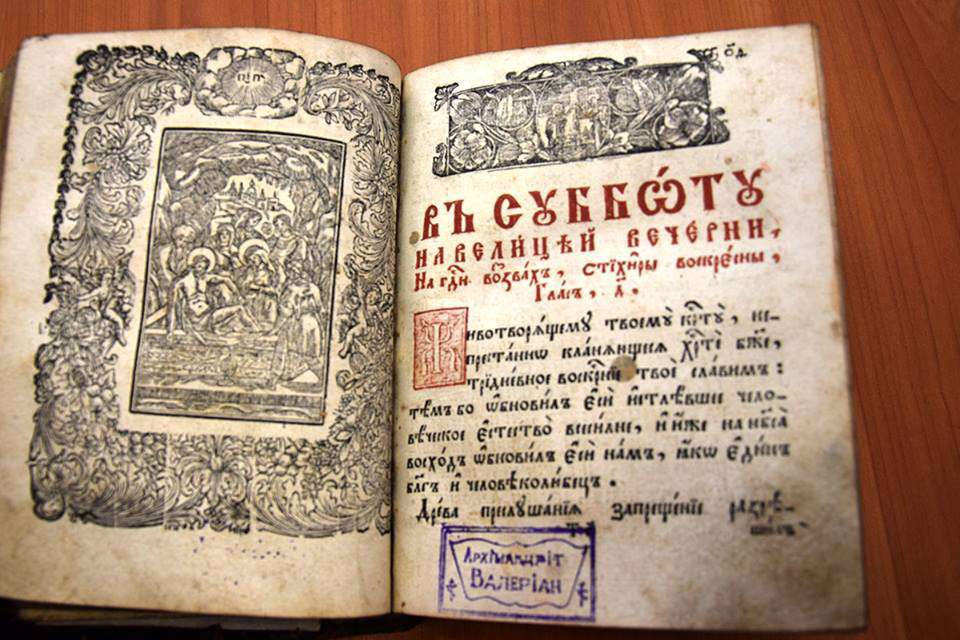 ВЪ СꙊББѠ́ТꙊ
НА ВЕЛИ́ЦѢЙ ВЕЧЕ́РНИ,
На гдⷭ҇и воззва́хъ, стїхи̑ры воскрⷭ҇ны,
Гла́съ, а҃.
Животворѧ́щемꙋ твоемꙋ̀ крⷭ҇тꙋ̀, не-
преста́ннѡ кла́нѧющесѧ хрⷭ҇тѐ бж҃е,
трїдне́вное воскрⷭ҇нїе твоѐ сла́вимъ:
тѣ́мъ бо ѡ҆бнови́лъ є҆сѝ и҆стлѣ́вшее чело-
вѣ́ческое є҆стество̀ всеси́лне, и҆ и҆́же на нб҃са̀
восхо́дъ ѡ҆бнови́лъ є҆сѝ на́мъ, ꙗ҆́кѡ є҆ди́нъ
бл҃гъ и҆ человѣколю́бецъ.
Дре́ва преслꙋша́нїѧ запреще́нїе разрѣ-
АРХІМАНДРІТ
ВАЛЕРІАН